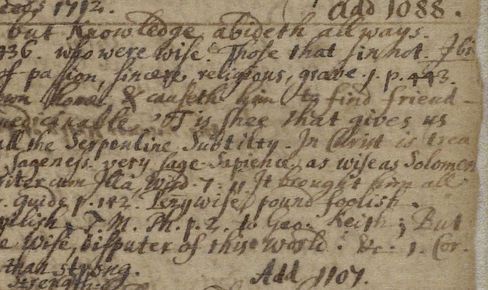 1712. Add 1088.
but Knowledge abideth allways.
436. who were wise. Those that sin not. Ibi
of passion, sincere, religious, grave. 1. p. 443.
own home, & causeth him to find friend-
medicinable. 'T is shee that gives us
all the Serpentine Subtilty. In Christ is trea
Sageness. very sage. Sapience, as wise as Solomon
cum Illa, Wisd. 7. 11. It brought him all
. Guide p. 112. Penywise, pound foolish.
. P. 2. to Geo. Keith; But
e Wise, disputer of this World. &c. 1. Cor.
than strong. Add 1107.
strength